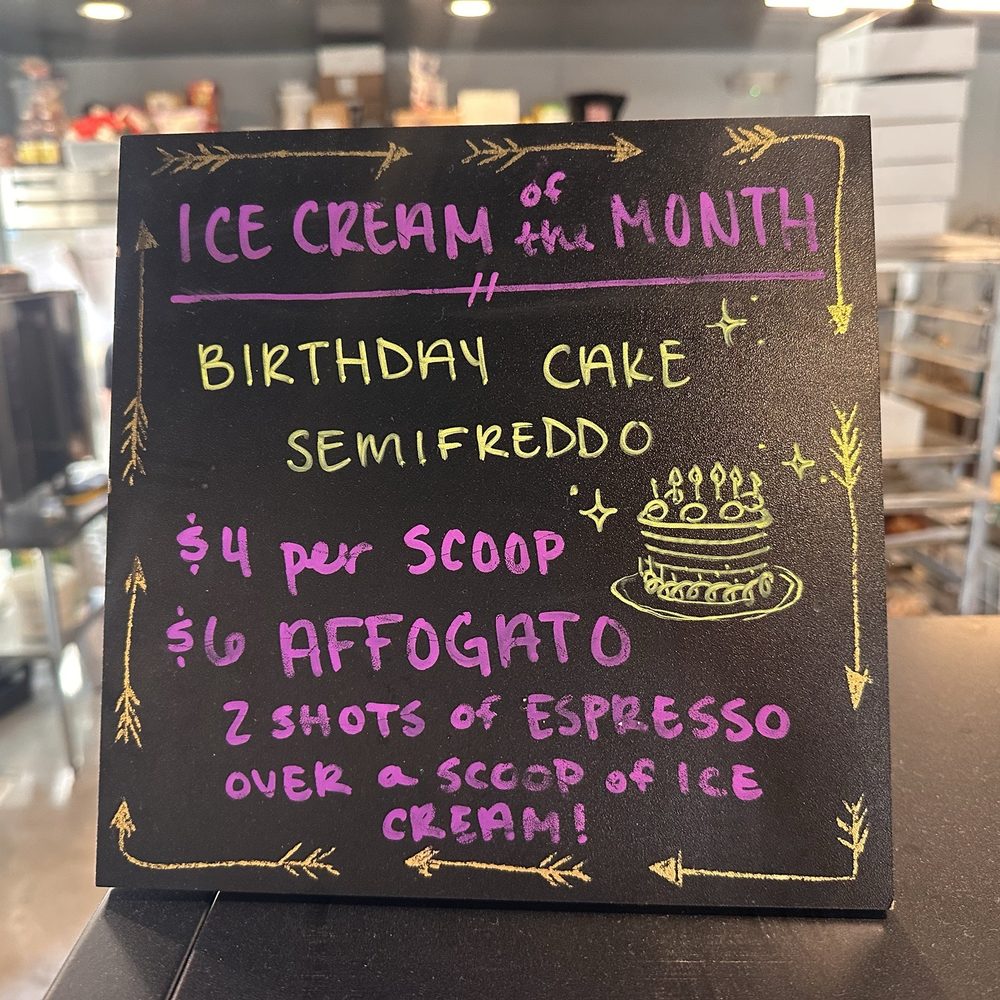 ICE CREAM of the MONTH
BIRTHDAY CAKE
SEMIFREDDO
$4 per SCOOP
$6 AFFOGATO
2 SHOTS of ESPRESSO
OVER a SCOOP of ICE
CREAM!